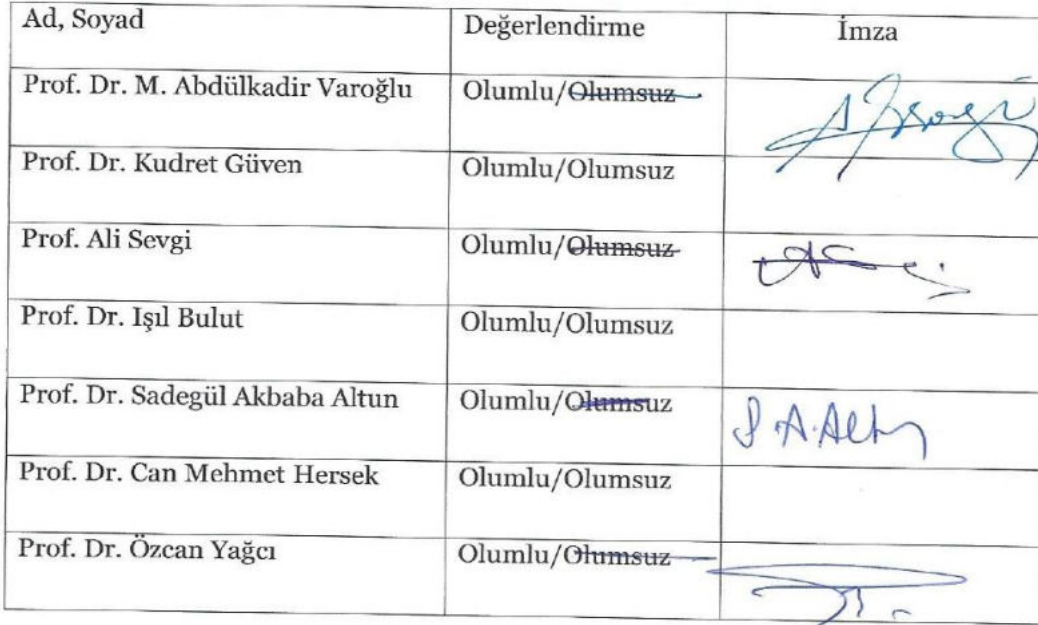 Ad, Soyad Değerlendirme İmza
Prof. Dr. M. Abdülkadir Varoğlu Olumlu/Olumsuz
Prof. Dr. Kudret Güven Olumlu/Olumsuz
Prof. Ali Sevgi Olumlu/Olumsuz
Prof. Dr. Işıl Bulut Olumlu/Olumsuz
Prof. Dr. Sadegül Akbaba Altun Olumlu/Olumsuz S.A.Altun
Prof. Dr. Can Mehmet Hersek Olumlu/Olumsuz
Prof. Dr. Özcan Yağcı Olumlu/Olumsuz